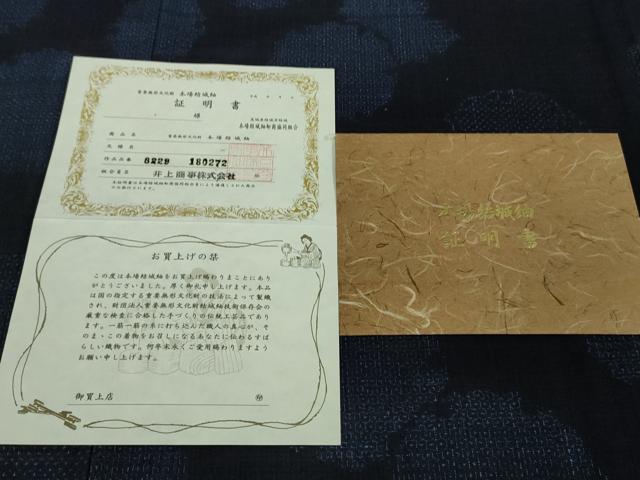 重要無形文化財 本場結城紬
証明書
様
本場結城紬卸商協同組合
商品名
重要無形文化財 本場結城紬
反端名
作品品番
8229 180272
組合員名
井上商事株式会社
お買上げの栞
この度は本場結城紬をお買上げ賜わりまことにあり
がとうございました。厚く御礼申し上げます。本品
は国の指定する重要無形文化財の技法によって製織
され、財団法人重要無形文化財結城紬技術保存会の
厳重な検査に合格した手づくりの伝統工芸品であり
ます。一筋一筋の糸に打ち込んだ職人の真心が、そ
のまゝこの着物をお召しになるあなたに伝わるすば
らしい織物です。何卒末永くご愛用賜わりますよう
お願い申し上げます。
御買上店
㊞
本場結城紬
証明書